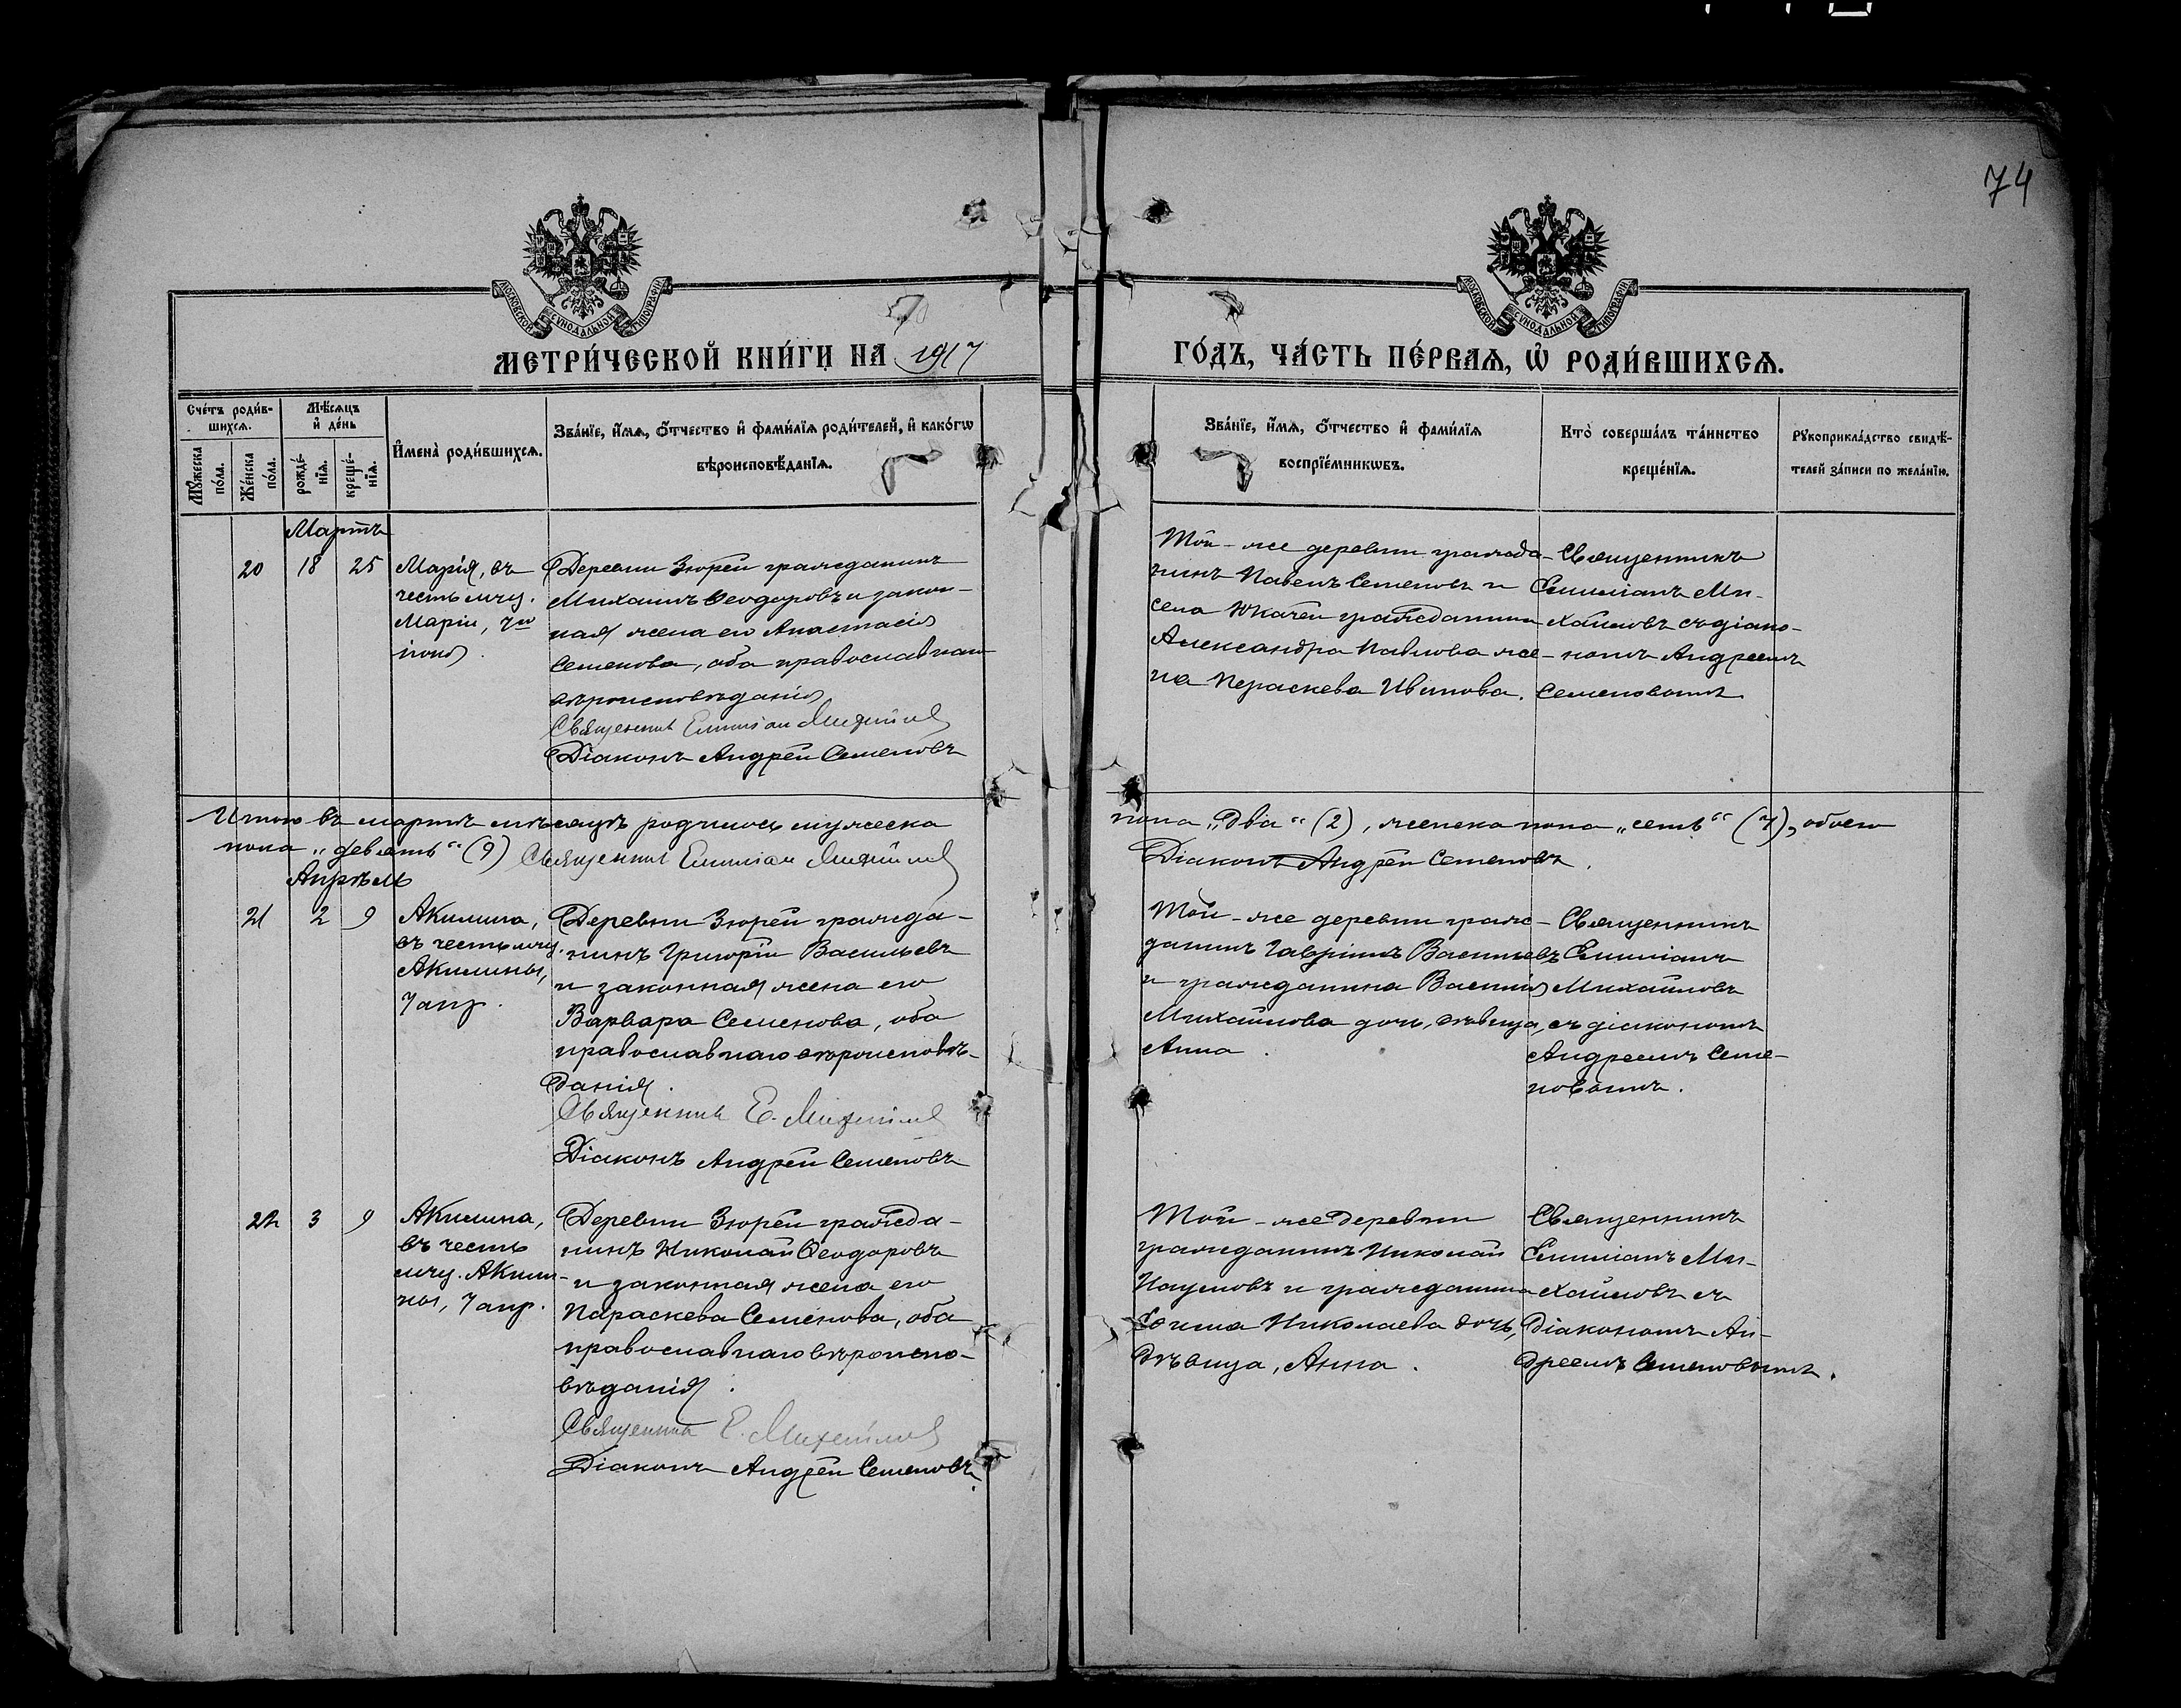 74
МОСКОВСКОЙ СѴНОДАЛЬНОЙ ТИПОГРАФІИ
МОСКОВСКОЙ СѴНОДАЛЬНОЙ ТИПОГРАФІИ
МЕТРИ́ЧЕСКОЙ КНИ́ГИ НА 1917
ГО́ДЪ, ЧА́СТЬ ПЕ́РВАѦ, Ѡ҆ РОДИ́ВШИХСѦ.
Сче́тъ роди́в-
шихсѧ.
Мꙋ́жеска по́ла.
Же́нска по́ла.
Мѣ́сѧцъ и҆ де́нь
рожде́-нїѧ.
креще́-нїѧ.
И҆мена̀ роди́вшихсѧ.
Зва́нїе, и҆́мѧ, ѻ҆́тчество и҆ фами́лїѧ роди́телей, и҆ како́гѡ
вѣроисповѣ́данїѧ.
Зва́нїе, и҆́мѧ, ѻ҆́тчество и҆ фами́лїѧ
воспрїе́мникѡвъ.
Кто̀ соверша́лъ та́инство
креще́нїѧ.
Рꙋкоприкла́дство свидѣ́-
телей за́писи по жела́нїю.
Мартъ
20 18 25
Марія, въ
честь мчц.
Маріи, 7го
іюня.
Деревни Зюрей гражданинъ
Михаилъ Ѳеодоровъ и закон-
ная жена его Анастасія
Семенова, оба православнаго
вѣроисповѣданія
Священникъ Емиліан Михайлов
Діаконъ Андрей Семеновъ
Той-же деревни гражда-
нинъ Павелъ Семеновъ и
села Юкачей гражданина
Александра Павлова же-
на Параскева Иванова.
Священникъ
Емиліанъ Ми-
хайловъ съ діако-
номъ Андреемъ
Семеновымъ
Итого въ мартѣ мѣсяцѣ родилось мужеска
пола „два“ (2), женска пола „семь“ (7), обоего
пола „девять“ (9) Священникъ Емиліан Михайлов
Діаконъ Андрей Семеновъ.
Апрѣль
21 2 9
Акилина,
въ честь мчц.
Акилины,
7 апр.
Деревни Зюрей гражда-
нинъ Григорій Васильевъ
и законная жена его
Варвара Семенова, оба
православнаго вѣроисповѣ-
данія.
Священникъ Е. Михайлов
Діаконъ Андрей Семеновъ
Той-же деревни граж-
данинъ Гавріилъ Васильевъ
и гражданина Василія
Михайлова дочь, дѣвица,
Анна.
Священникъ
Емиліанъ
Михайловъ
съ діакономъ
Андреемъ Семе-
новымъ.
22 3 9
Акилина,
въ честь
мчц. Акили-
ны, 7 апр.
Деревни Зюрей гражда-
нинъ Николай Ѳеодоровъ
и законная жена его
Параскева Семенова, оба
православнаго вѣроиспо-
вѣданія.
Священникъ Е. Михайлов
Діаконъ Андрей Семеновъ.
Той-же деревни
гражданинъ Николай
Наумовъ и гражданина
Николаева дочь,
дѣвица, Анна.
Священникъ
Емиліанъ Ми-
хайловъ съ
діакономъ Ан-
дреемъ Семеновымъ.